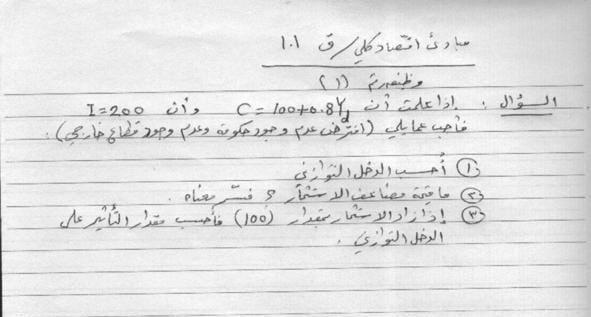 مبادئ اقتصاد كلي / ق ١٠١
وظيفة رقم (١)
السؤال : إذا علمت أن C = 100+0.8Yd وأن I = 200
فأجب عما يلي (افترض عدم وجود حكومة وعدم وجود قطاع خارجي) :
① أحسب الدخل التوازني
② ما قيمة مضاعف الاستثمار ؟ فسّر معناه .
③ إذا زاد الاستثمار بمقدار (100) فأحسب مقدار التأثير على
الدخل التوازني .